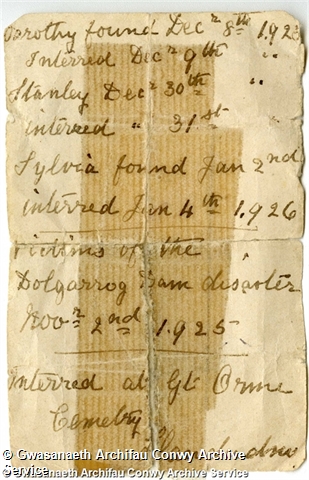 Dorothy found Decr 8th 1925
Interred Decr 9th "
Stanley Decr 30th "
interred " 31st
Sylvia found Jan 2nd
interred Jan 4th 1.926
victims of the
Dolgarrog Dam disaster
Novr 2nd 1.925
Interred at Gt Orme
Cemetry
Llandudno
© Gwasanaeth Archifau Conwy Archive
Service
© Gwasanaeth Archifau Conwy Archive Service